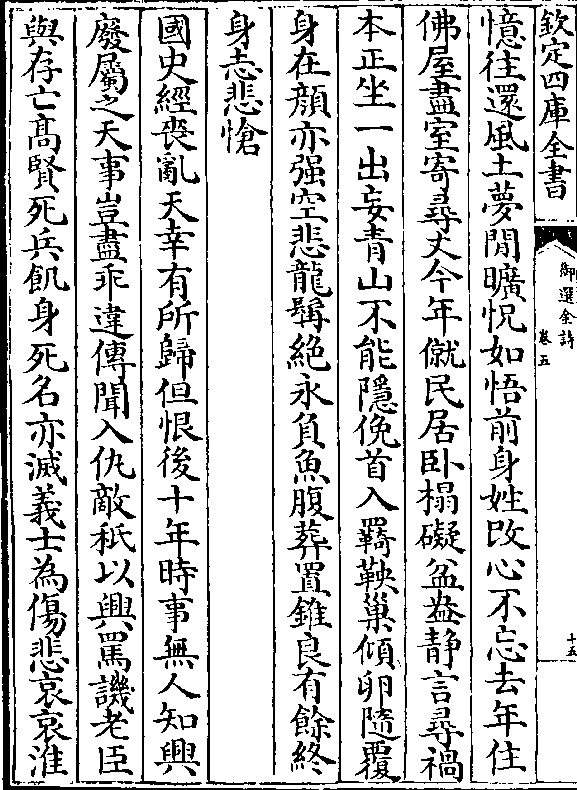 欽定四庫全書
御選金詩
卷五
十五
憶往還風土夢閒曠怳如悟前身姓改心不忘去年住
佛屋盡室寄尋丈今年僦民居卧榻礙盆盎静言尋禍
本正坐一出妄青山不能隱俛首入羈鞅巢傾卵隨覆
身在顔亦强空悲龍髯絶永負魚腹葬置錐良有餘終
身志悲愴
國史經喪亂天幸有所歸但恨後十年時事無人知興
廢屬之天事豈盡乖違傳聞入仇敵秖以興罵譏老臣
與存亡髙賢死兵飢身死名亦滅義士為傷悲哀哀淮